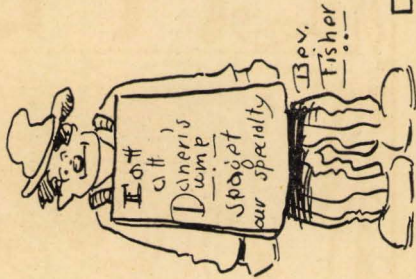 Eatt
att
Daneri's
Dump
spaget
our specialty
Bev.
Fisher